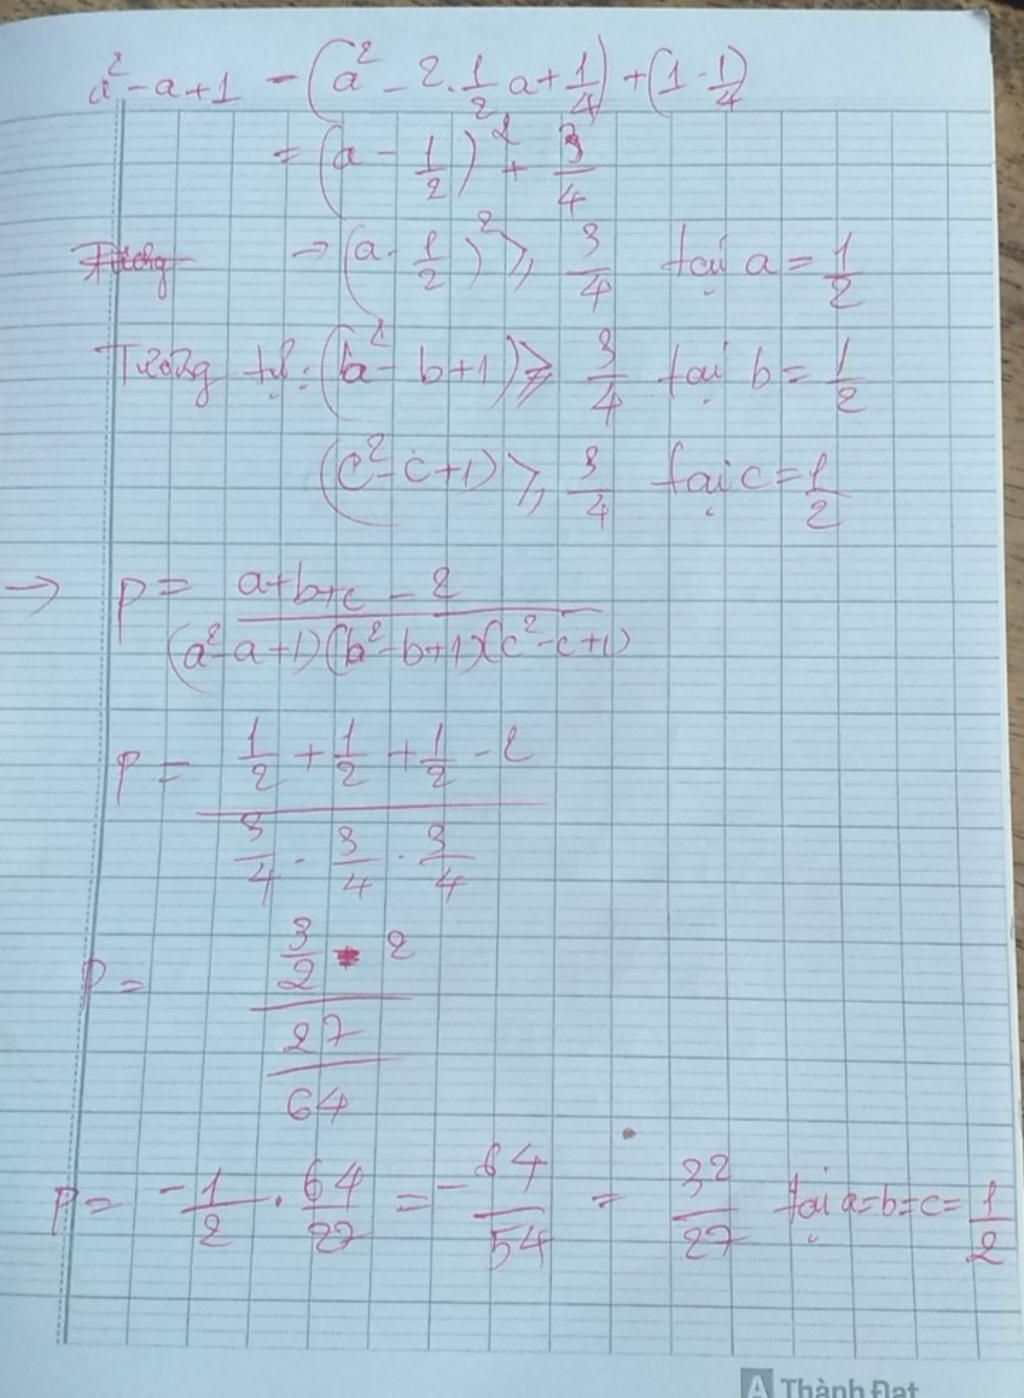 a² - a + 1 - (a² - 2.1/2 a + 1/4) + (1 - 1/4)
= (a - 1/2)² + 3/4
→ (a - 1/2)² ≥ 3/4 tại a = 1/2
Tương tự: (b² - b + 1) ≥ 3/4 tại b = 1/2
(c² - c + 1) ≥ 3/4 tại c = 1/2
→ P = (a + b + c - 2)/((a² - a + 1)(b² - b + 1)(c² - c + 1))
P = (1/2 + 1/2 + 1/2 - 2)/(3/4 . 3/4 . 3/4)
P = (3/2 - 2)/(27/64)
P = -1/2 . 64/27 = -64/54 = 32/27 tại a = b = c = 1/2
A Thành Đạt